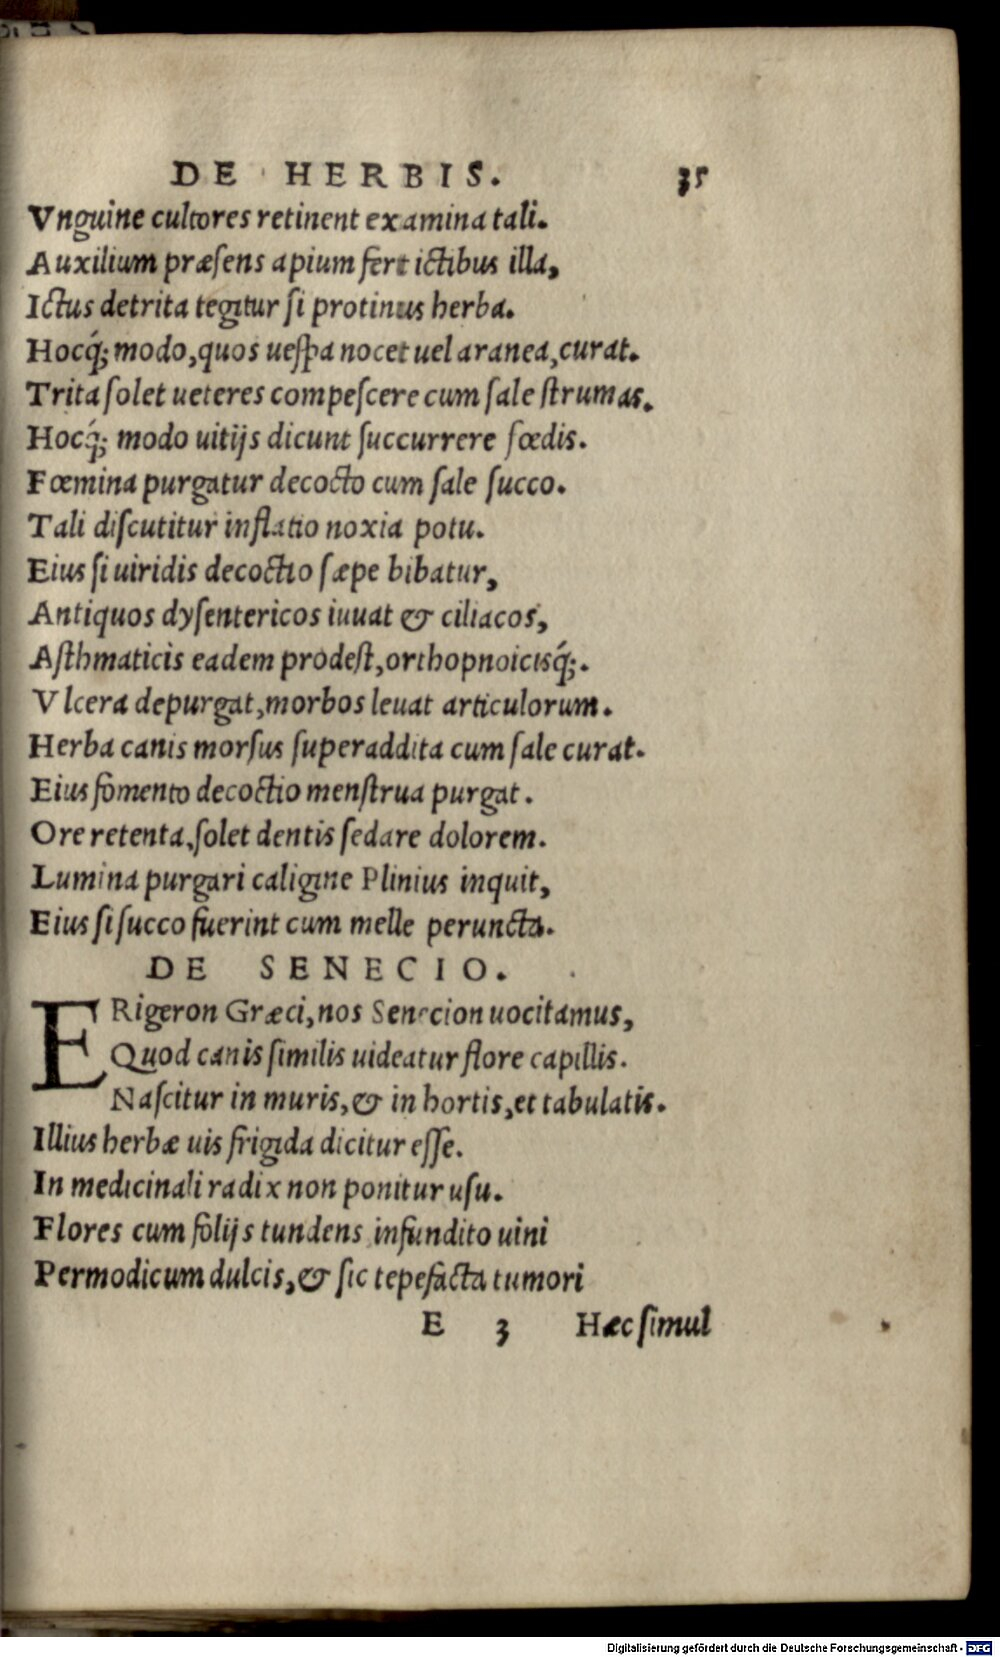 DE HERBIS. 35
Vnguine cultores retinent examina tali.
Auxilium præsens apium fert ictibus illa,
Ictus detrita tegitur si protinus herba.
Hocq́; modo, quos uespa nocet uel aranea, curat.
Trita solet ueteres compescere cum sale strumas.
Hocq́; modo uitijs dicunt succurrere fœdis.
Fœmina purgatur decocto cum sale succo.
Tali discutitur inflatio noxia potu.
Eius si uiridis decoctio sæpe bibatur,
Antiquos dysentericos iuuat & ciliacos,
Asthmaticis eadem prodest, orthopnoicisq́;.
Vlcera depurgat, morbos leuat articulorum.
Herba canis morsus superaddita cum sale curat.
Eius fomento decoctio menstrua purgat.
Ore retenta, solet dentis sedare dolorem.
Lumina purgari caligine Plinius inquit,
Eius si succo fuerint cum melle peruncta.
DE SENECIO.
ERigeron Græci, nos Senecion uocitamus,
Quod canis similis uideatur flore capillis.
Nascitur in muris, & in hortis, et tabulatis.
Illius herbæ uis frigida dicitur esse.
In medicinali radix non ponitur usu.
Flores cum folijs tundens infundito uini
Permodicum dulcis, & sic tepefacta tumori
E 3 Hæc simul
Digitalisierung gefördert durch die Deutsche Forschungsgemeinschaft - DFG